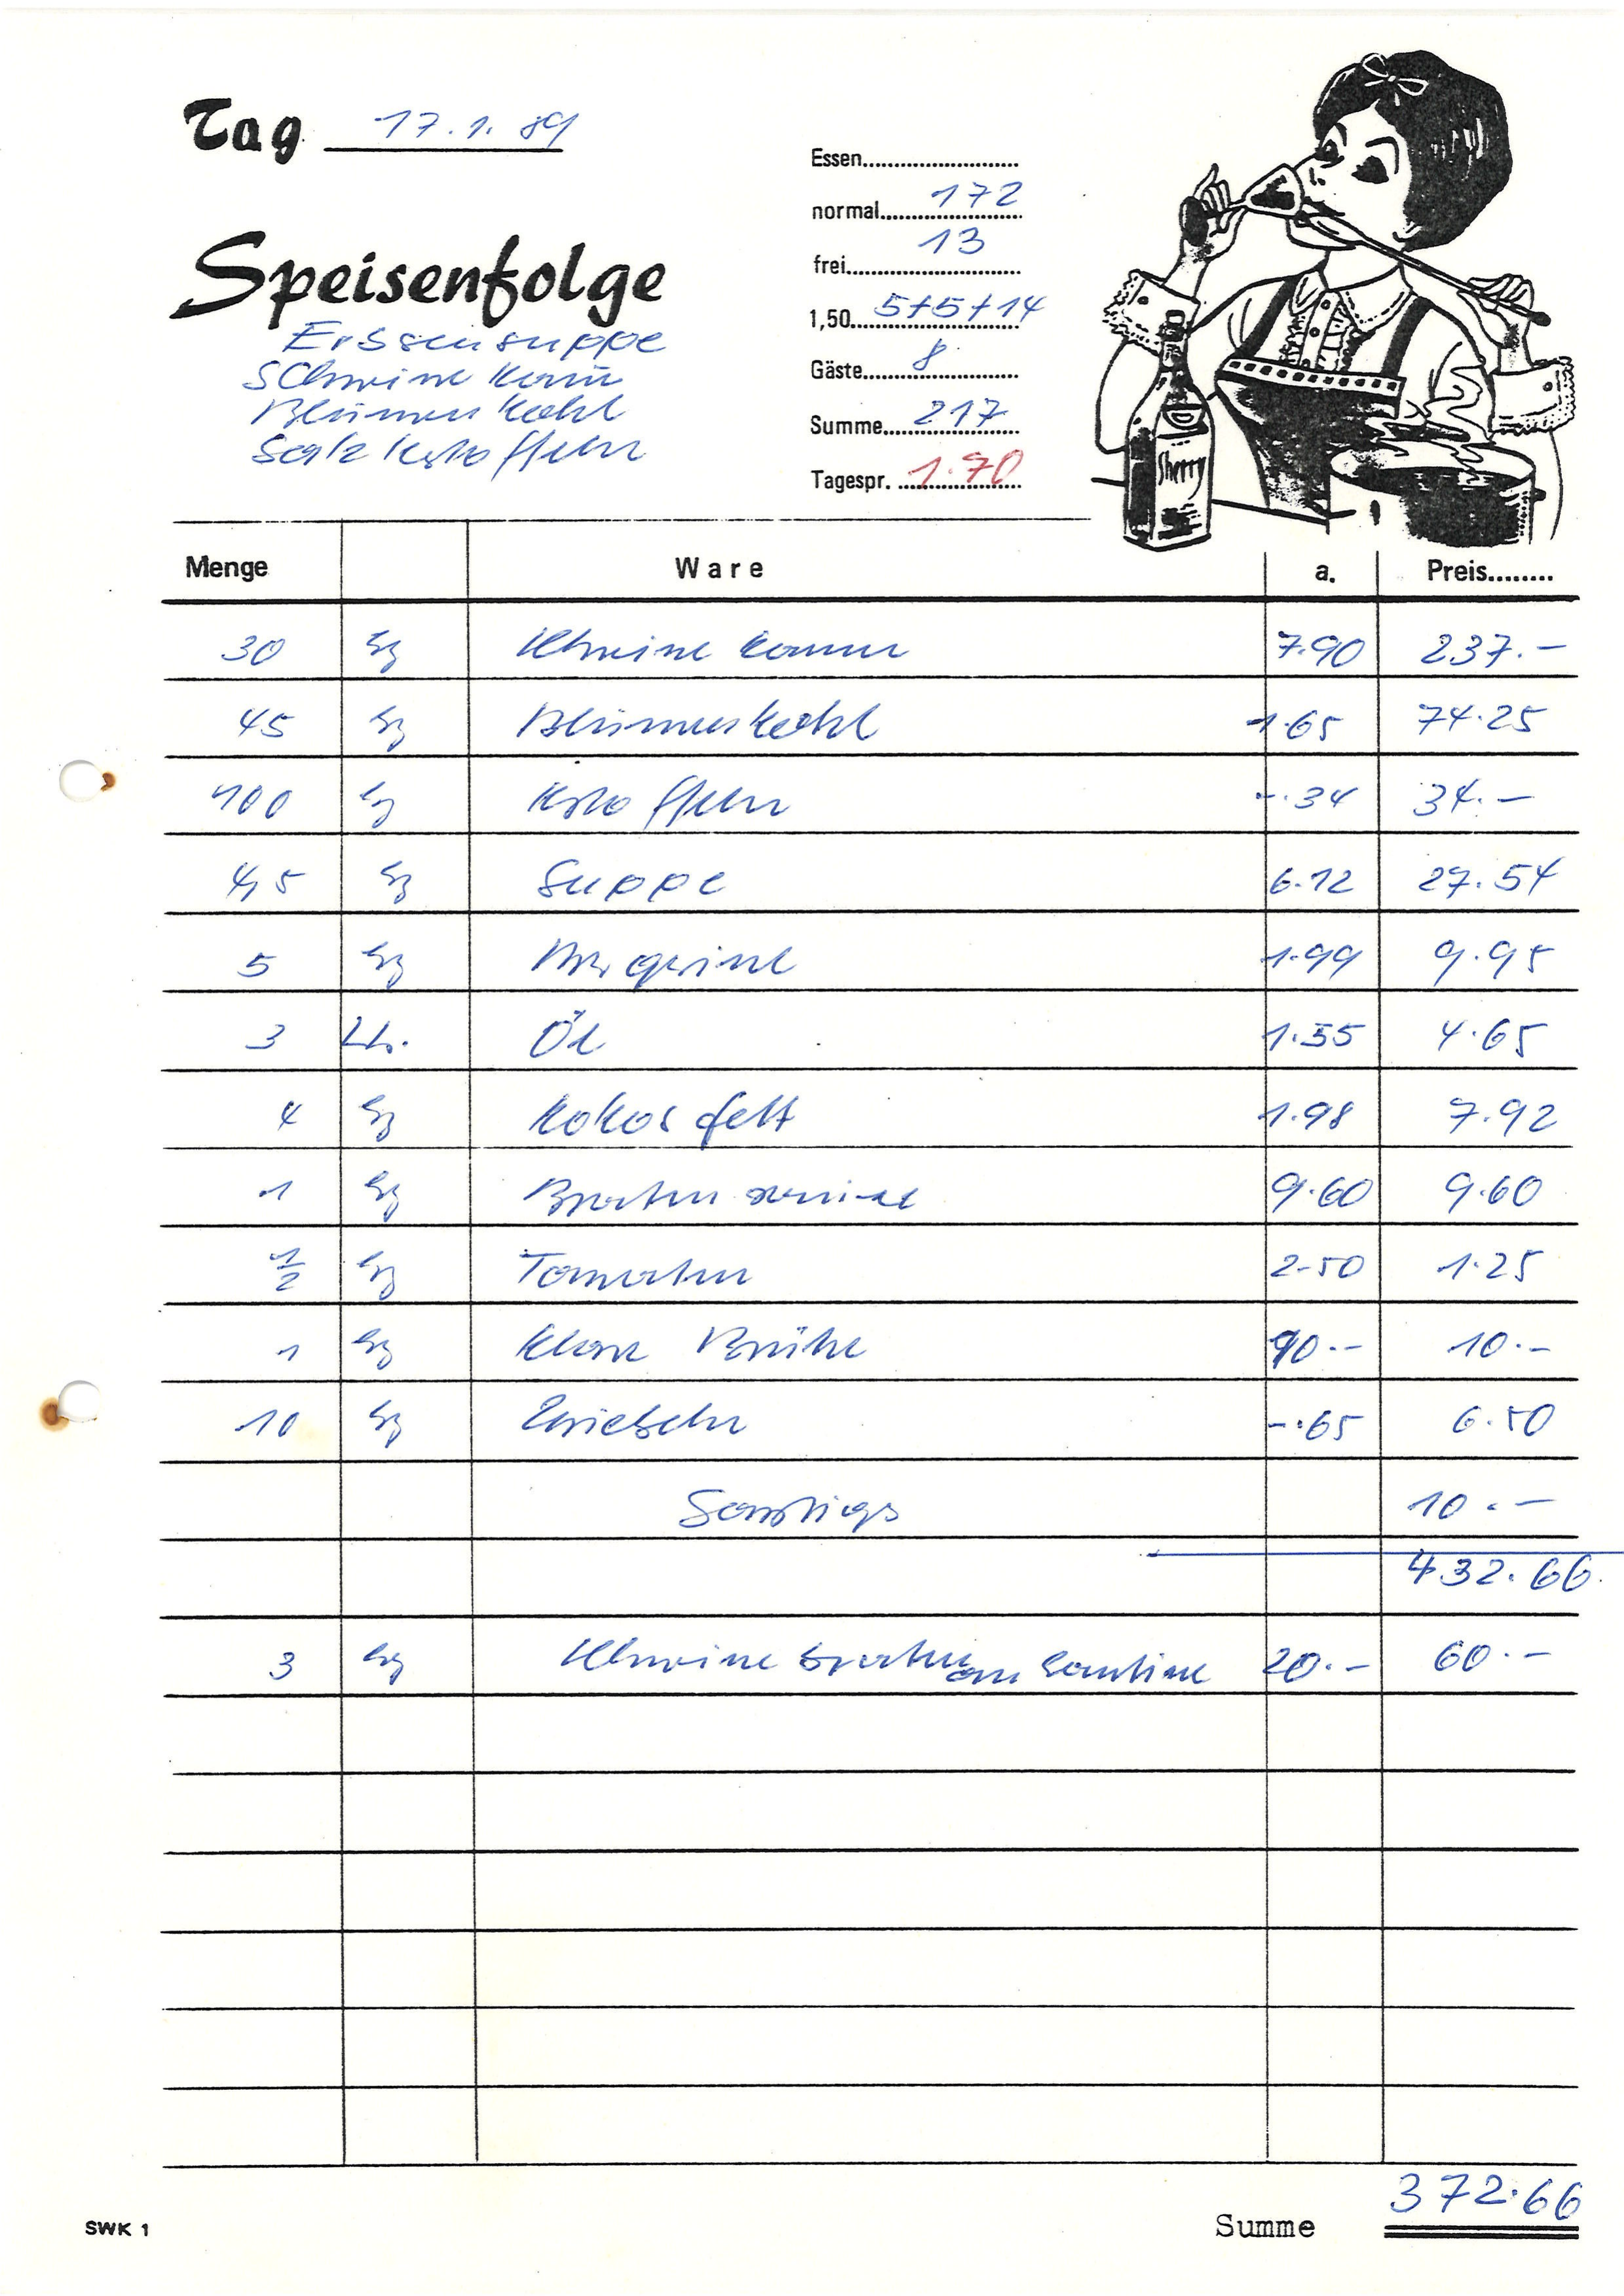 Tag 17.1.89
Essen
normal 172
frei 13
1,50 5+5+14
Gäste 8
Summe 217
Tagespr. 1.70
Speisenfolge
Erbsensuppe
Schweine Kam̄
Blumen Kohl
Salz Kartoffeln
Sherry
Menge Ware a. Preis
30 kg Schweine kamm 7.90 237.-
45 kg Blumenkohl 1.65 74.25
100 kg Kartoffeln -.34 34.-
4,5 kg Suppe 6.12 27.54
5 kg Margarine 1.99 9.95
3 Ltr. Öl 1.55 4.65
4 kg Kokosfett 1.98 7.92
1 kg Braten 9.60 9.60
1/2 kg Tomaten 2.50 1.25
1 kg Klare Brühe 10.- 10.-
10 kg Zwiebeln -.65 6.50
Sonstiges 10.-
432.66
3 kg Schweine braten an Kantine 20.- 60.-
SWK 1 Summe 372.66